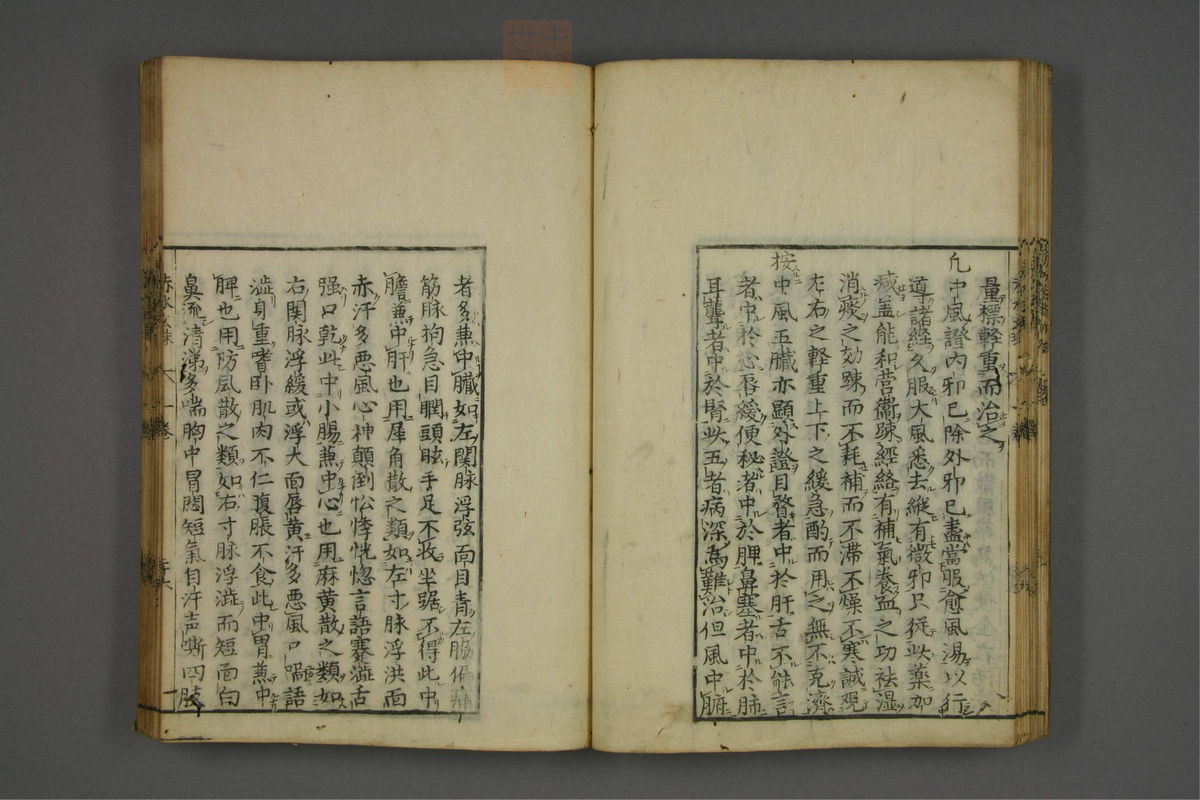 量標軽重而治之
凢中風證内邪已除外邪已盡當服愈風湯以行
導諸経久服大風悉去縦有微邪只従此薬加
减盖能和営衞疎經絡有補氣養血之功祛湿
消痰之効疎而不耗補而不滞不燥不寒誠䂓
左右之軽重上下之緩急酌而用之無不克濟
按中風五臓亦顯外證目瞀者中於肝舌不能言
者中於心唇緩便秘者中於脾鼻塞者中於肺
耳聾者中於腎此五者病深為難治但風中腑
者多兼中臓如左関脉浮弦面目青左脇偏痛
筋脉拘急目瞤頭眩手足不收坐踞不得此中
膽兼中肝也用犀角散之類如左寸脉浮洪面
赤汗多悪風心神顛倒忪悸恍惚言語蹇澁舌
强口乾此中小腸兼中心也用麻黄散之類如
右関脉浮緩或浮大面唇黄汗多悪風口喎語
澁身重嗜卧肌肉不仁腹脹不食此中胃兼中
脾也用防風散之類如右寸脉浮澁而短面白
鼻流清涕多喘胸中冒悶短氣自汗声嘶四肢